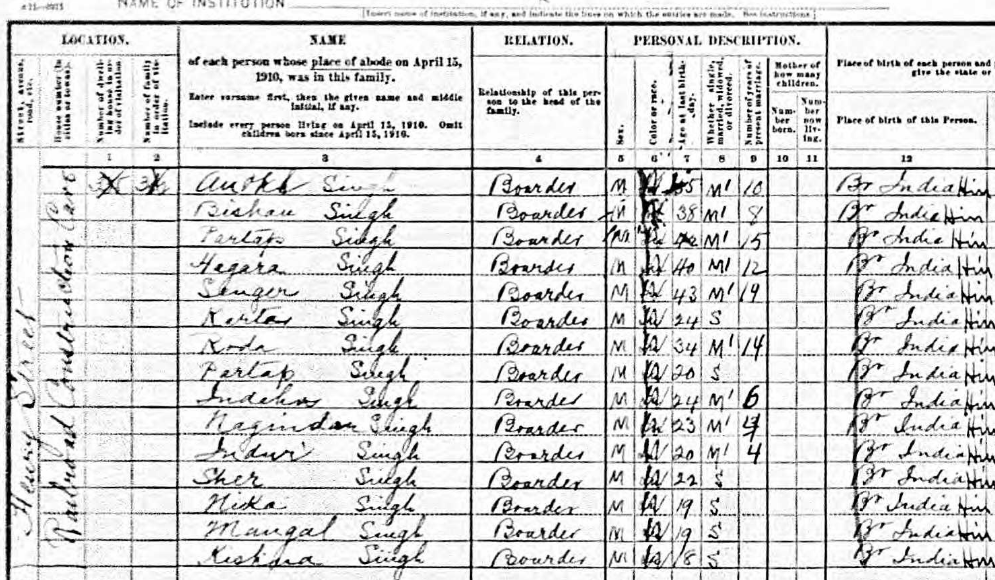 NAME OF INSTITUTION
[Insert name of institution, if any, and indicate the lines on which the entries are made. See instructions.]
LOCATION. NAME RELATION. PERSONAL DESCRIPTION.
of each person whose place of abode on April 15, 1910, was in this family.
Enter surname first, then the given name and middle initial, if any.
Include every person living on April 15, 1910. Omit children born since April 15, 1910.
Street, avenue, road, etc.
House number (in cities or towns).
Number of dwelling house in order of visitation.
Number of family in order of visitation.
Relationship of this person to the head of the family.
Sex.
Color or race.
Age at last birthday.
Whether single, married, widowed, or divorced.
Number of years of present marriage.
Mother of how many children.
Number born.
Number now living.
Place of birth of each person and
give the state or
Place of birth of this Person.
1 2 3 4 5 6 7 8 9 10 11 12
Henry Street
Railroad Construction
Singh Boarder M M1 10 Br India Hin
Bishan Singh Boarder M 38 M1 8 Br India Hin
Partap Singh Boarder M M1 15 Br India Hin
Hagara Singh Boarder M 40 M1 12 Br India Hin
Senger Singh Boarder M 43 M1 19 Br India Hin
Kartar Singh Boarder M 24 S Br India Hin
Koda Singh Boarder M 34 M1 14 Br India Hin
Partap Singh Boarder M 20 S Br India Hin
Singh Boarder M 24 M1 6 Br India Hin
Nagindar Singh Boarder M 23 M1 4 Br India Hin
Singh Boarder M 20 M1 4 Br India Hin
Sher Singh Boarder M 22 S Br India Hin
Nika Singh Boarder M 19 S Br India Hin
Mangal Singh Boarder M 19 S Br India Hin
Singh Boarder M 18 S Br India Hin